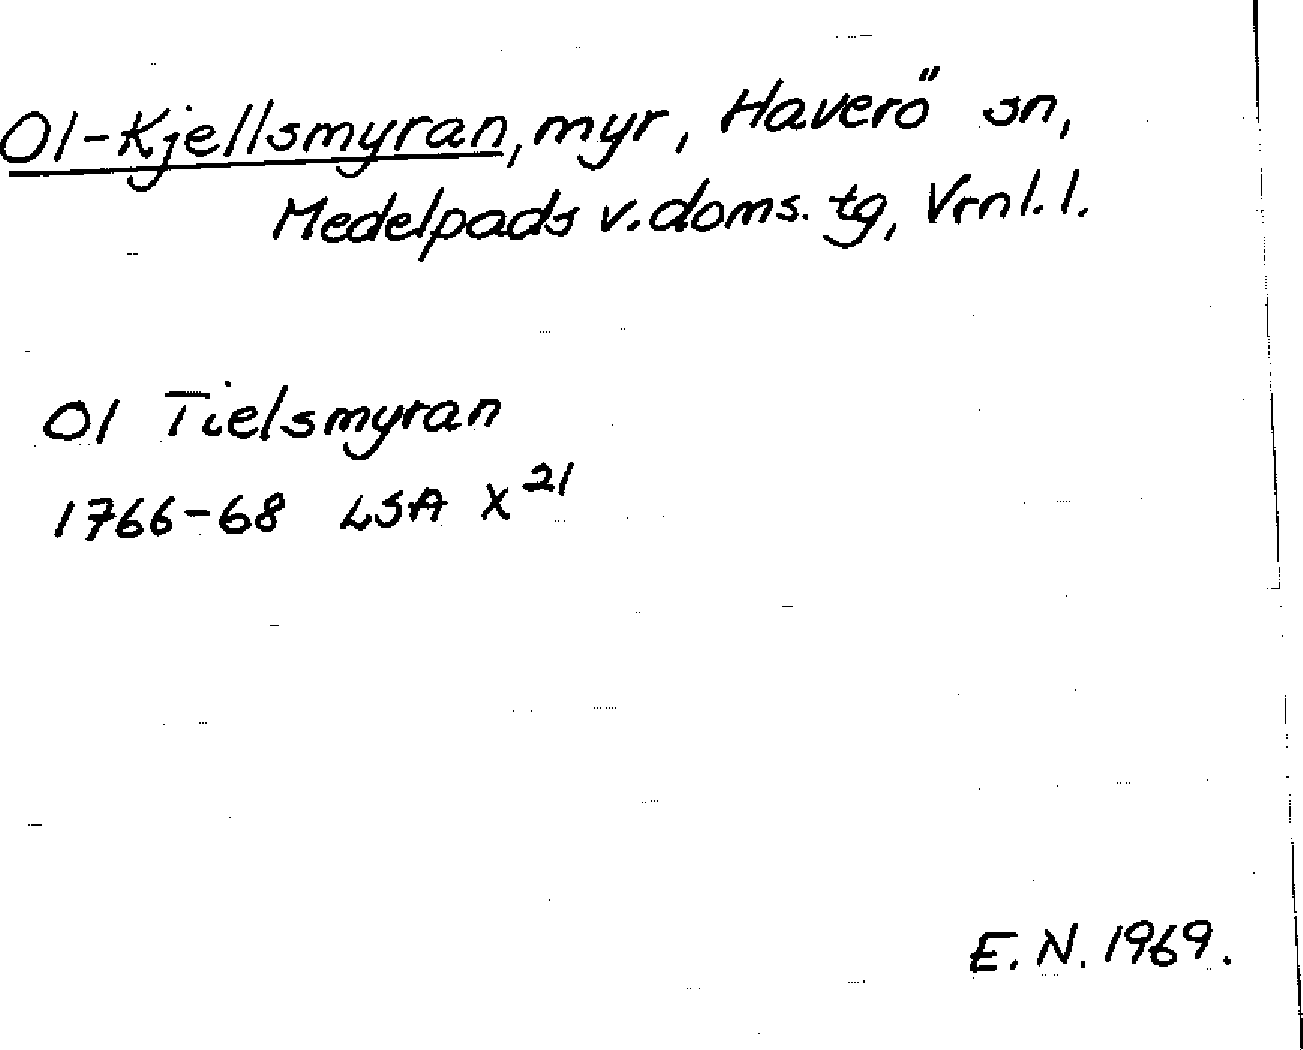 Ol-Kjellsmyran, myr, Haverö sn,
Medelpads v. doms. tg, Vrnl. l.
Ol Tielsmyran
1766-68 LSA X²¹
E. N. 1969.